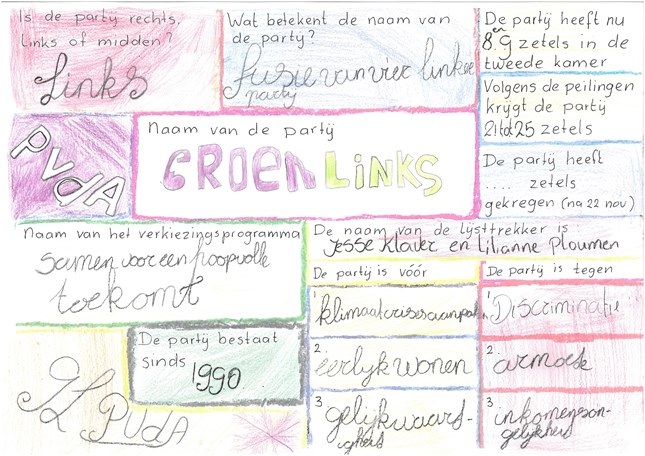 Is de partij rechts,
links of midden?
Links
Wat betekent de naam van
de party?
fusie van vier linkse
party
De partij heeft nu
8 en 9 zetels in de
tweede kamer
Volgens de peilingen
krijgt de partij
21 tot 25 zetels
De partij heeft
.... zetels
gekregen (na 22 nov)
PVdA
Naam van de partij
GROEN LINKS
Naam van het verkiezingsprogramma
samen voor een hoopvolle
toekomt
De naam van de lijsttrekker is:
Jesse Klaver en Lilianne Ploumen
De partij is vóór
1 klimaatcrisesaanpakken
2 eerlijk wonen
3 gelijkwaard-
igheid
De partij is tegen
1 Discriminatie
2 armoede
3 inkomenson-
gelijkheid
De partij bestaat
sinds
1990
GL PVdA